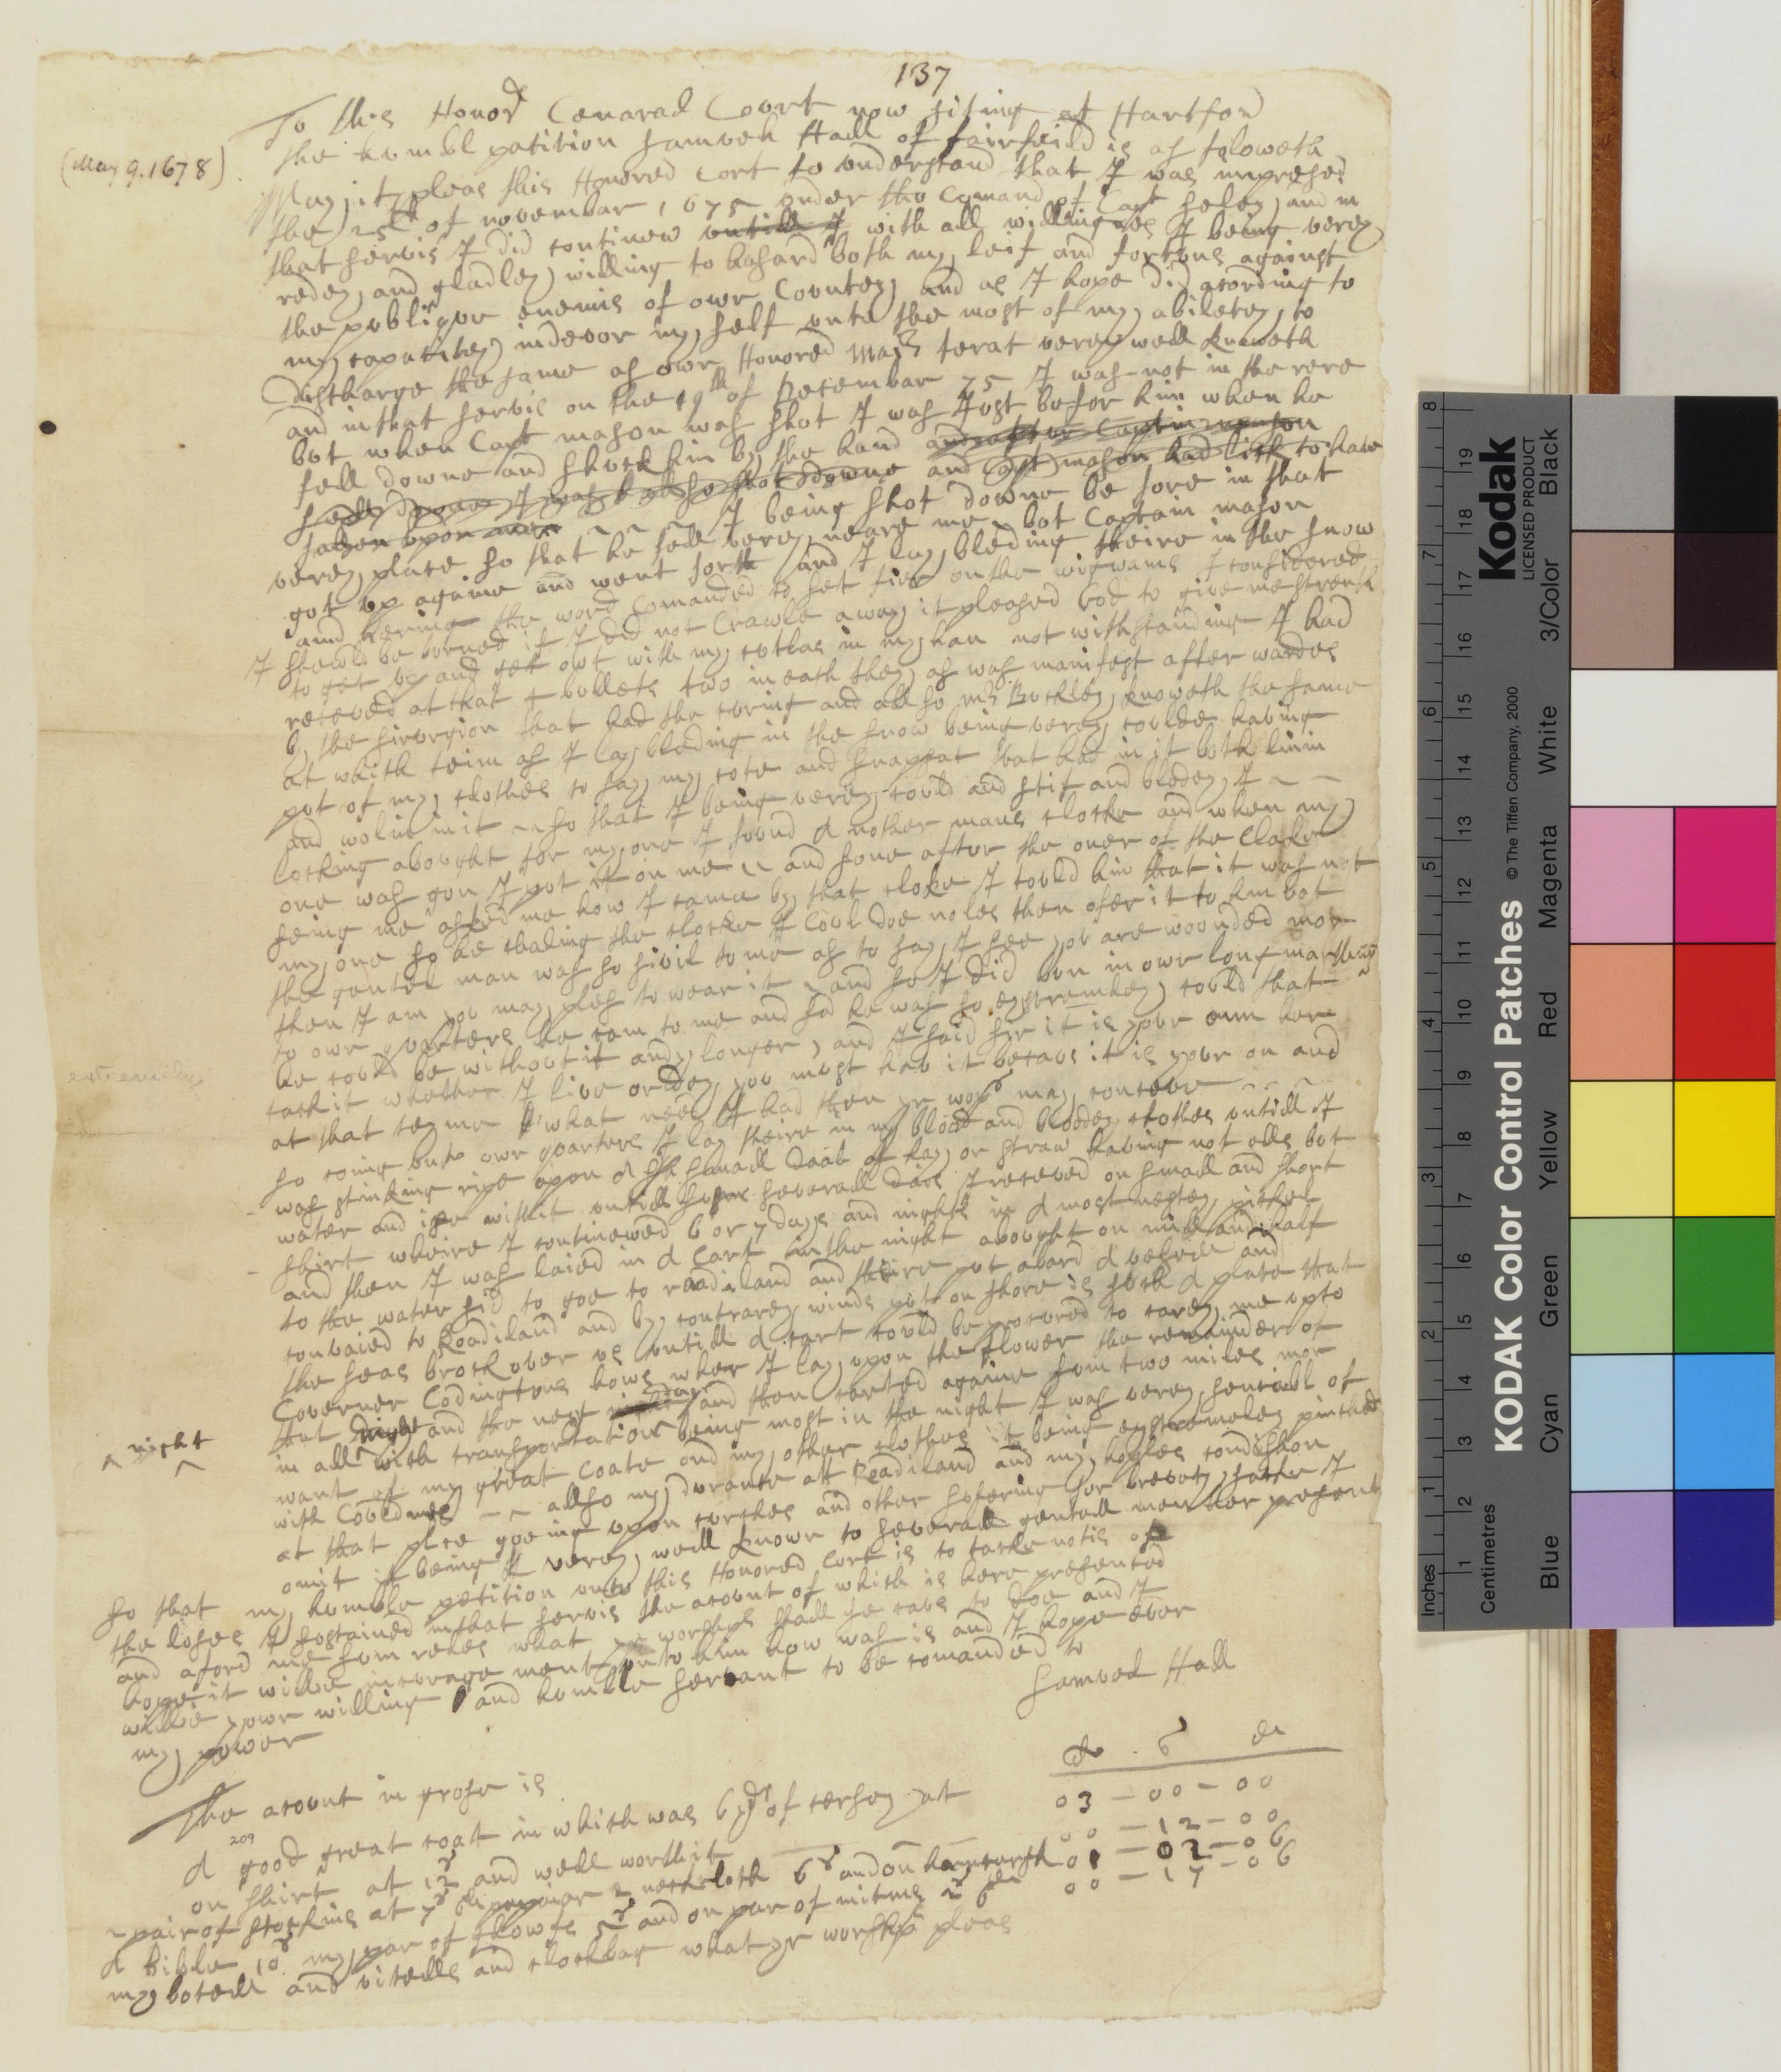 137
To this Honord Cenarad Coort now siting at Hartford
(May 9. 1678)
the humbl patition samuell Hall of fairfeild is as foloweth
May it pleas this Honored Cort to understand that I was impresed
the 25th of novembar 1675 under the Comand of Capt seley, and in
that servis I did continew untill I with all willingnes I being verey
redey, and gladley, willing to hasard both my, leif and fortune against
the publique enemis of owr Country, and as I hope did acording to
my, capacitey, indevor my, self unto the most of my, abilitey, to
discharge the same as owr Honored Majes terat verey well knoweth
and in that servis on the 19th of Desembar 75 I was not in the rere
but when Capt mason was shot I was Just befor him when he
fell downe and shuck him by, the hand and after Captin mason
fell downe I was also shot downe and Capt mason had lick to have
falen upon me I being shot downe be fore in that
verey, place so that he fell verey, neare me but Captain mason
got up againe and went forth and I lay, bleding theire in the snow
and hering the word comanded to set fier on the wigwams I considered
I should be burned if I did not Crawle away, it pleased God to give me strenth
to get up and get owt with my, cutlas in my, han not withstanding I had
receved at that 4 bullets two in each they, as was manifest after wardes
by, the sirurgion that had the curing and allso mr Buckley, knoweth the same
at which teim as I lay, bleding in the snow being verey, coulde having
put of my, clothes to say, my, cote and that had in it both linin
and wolin in it so that I being verey, could and stif and bledey, I
locking abought for my, one I found a nother mans clocke and when my,
one was gon I put it on me and sone after the oner of the Clocke
seing me asked me how I came by, that cloke I tould him that it was not
my, one so he chaling the clocke I coul doe no les then ofer it to him but
the gentel man was so sivil to me as to say, I see you are woonded mor
then I am you may, ples to wear it and so I did but in owr long marthing
to owr quarters he cam to me and sd he was so exstremley, could that
he could be without it any, longer, and I said sir it is your oun her
tack it whether I live or dey, you must hav it becaus it is your on and
extremiley
at that teyme what need I had then yr wors may, conceve
so coing unto owr quarters I lay theire in my blood and bloddey, clothes untill I
was stincking ripe upon a small daall of hay, or straw having not elles but
water and ise withit untill severall dais I receved on small and short
shirt wheire I continewed 6 or 7 days and nights in a most nestey, pickel
and then I was laied in a Cart in the night abought on mile and half
to the water sid to goe to roadiland and theire put abord a vesell and
convaied to Roadiland and by, contrarey, winds put on shore is such a place that
the seas brock over us untill a cart could be procured to carey, me upto
Governer Codingtons hows wher I lay, upon the flower the remainder of
that night and the next day, and then carted againe som two miles mor
^ night ^
in all with transportation being most in the night I was verey, sensabl of
want of my, great Coate and my, other clothes it being exstremeley pinched
with Couldnes allso my, durance att Roadiland and my, hoples condishon
at that plce goeing upon cruches and other sufering for brevity, sacke I
omit it being verey, well known to severall gentell men her present
so that my, humble petition unto this Honored Cort is to tacke notis of
the loses I sustained in that servis the acount of which is here presented
and aford me som reles what yr worships shall se caus to doe and I
hope it will be incorage ment unto him how was is and I hope ever
willbe yowr willing and humble servant to be comanded to
my, power
Samuel Hall
The acount in prose is
li s d
209
a good great coat in which was 6 yds of cersey, at 03 - 00 - 00
on shirt at 12s and well worth it 00 - 12 - 00
2 pair of stockins at 7s 2 neckcloth 6s and on 01 - 02 - 06
a Bible 10s my, par of showes 5s and on par of mitins 2s 6d 00 - 17 - 06
my botell and vitells and clockbag what yr worshps pleas
KODAK Color Control Patches
© The Tiffen Company, 2000
Kodak
LICENSED PRODUCT
Inches 1 2 3 4 5 6 7 8
Centimetres 1 2 3 4 5 6 7 8 9 10 11 12 13 14 15 16 17 18 19
Blue Cyan Green Yellow Red Magenta White 3/Color Black